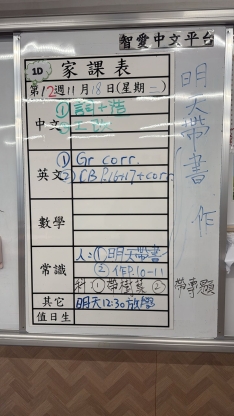 智愛中文平台
1D 家課表
第12週11月18日(星期一)
中文 ①
英文 ① Gr corr.
② CB P.16-17+corr.
數學
常識 人:①明天帶書
② 作P.10-11
科 ① 帶樹葉 ② 帶專題
其它 明天12:30放學
值日生
明天帶書
作